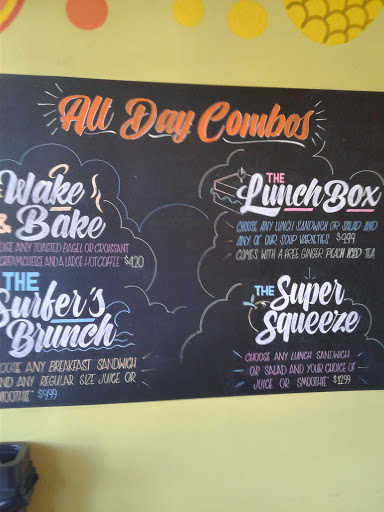 All Day Combos
Wake
& Bake
OSE ANY TOASTED BAGEL OR CROISSANT
CREAM CHEESE AND A LARGE HOT COFFEE $4.20
THE
Surfer's
Brunch
OOSE ANY BREAKFAST SANDWICH
ND ANY REGULAR SIZE JUICE OR
MOOTHIE $9.99
THE
Lunch Box
CHOOSE ANY LUNCH SANDWICH OR SALAD AND
ANY OF OUR SOUP VARIETIES
COMES WITH A FREE GINGER PEACH ICED TEA
THE Super
Squeeze
CHOOSE ANY LUNCH SANDWICH
OR SALAD AND YOUR CHOICE OF
JUICE OR SMOOTHIE $12.99